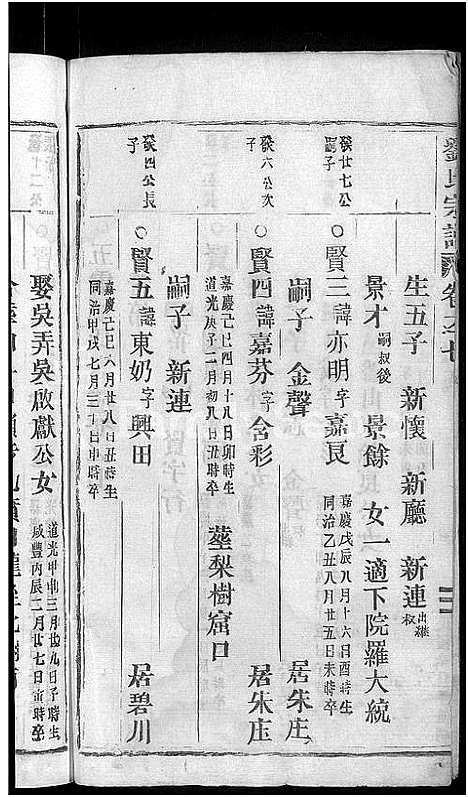 劉氏宗譜 卷之七
生五子 新懷 新廳 新連 出繼叔
景才 嗣叔後 景餘 女一適下院羅大統
發廿七公嗣子
○賢三 諱亦明 字嘉良 嘉慶戊辰八月十六日酉時生 同治乙丑八月廿五日未時卒
嗣子 金聲 居朱庄
發六公次子
○賢四 諱嘉芬 字含彩 居朱庄
嘉慶己巳四月十八日卯時生
道光庚子二月初八日丑時卒 塟梨樹窟口
嗣子 新連
發四公長子
○賢五 諱東奶 字興田 居碧川
嘉慶己巳八月廿八日丑時生
同治甲戌七月三十日申時卒
娶吳弄吳啟獻公女 道光甲申三月廿九日子時生 咸豐丙辰二月廿七日寅時卒